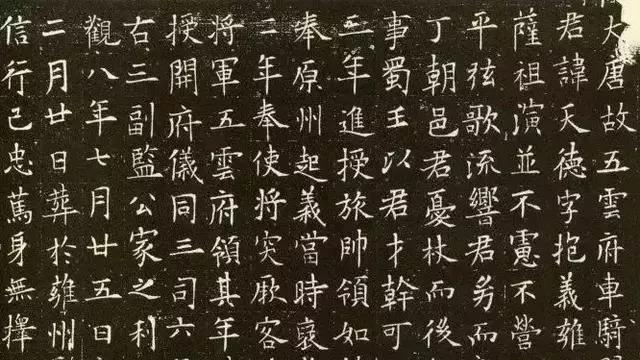 大唐故五雲府車騎
君諱天德字抱義雍
薩祖演並不慮不營
平弦歌流響君而
丁朝邑君憂杖而後
事蜀王以君才幹可
三年進授旅帥領如
奉原州起義當時
二年奉使將突厥客
將軍五雲府領其年
授開府儀同三司六
右三副監公家之利
觀八年七月廿五日
二月廿日葬於雍州
信行己忠篤身無擇